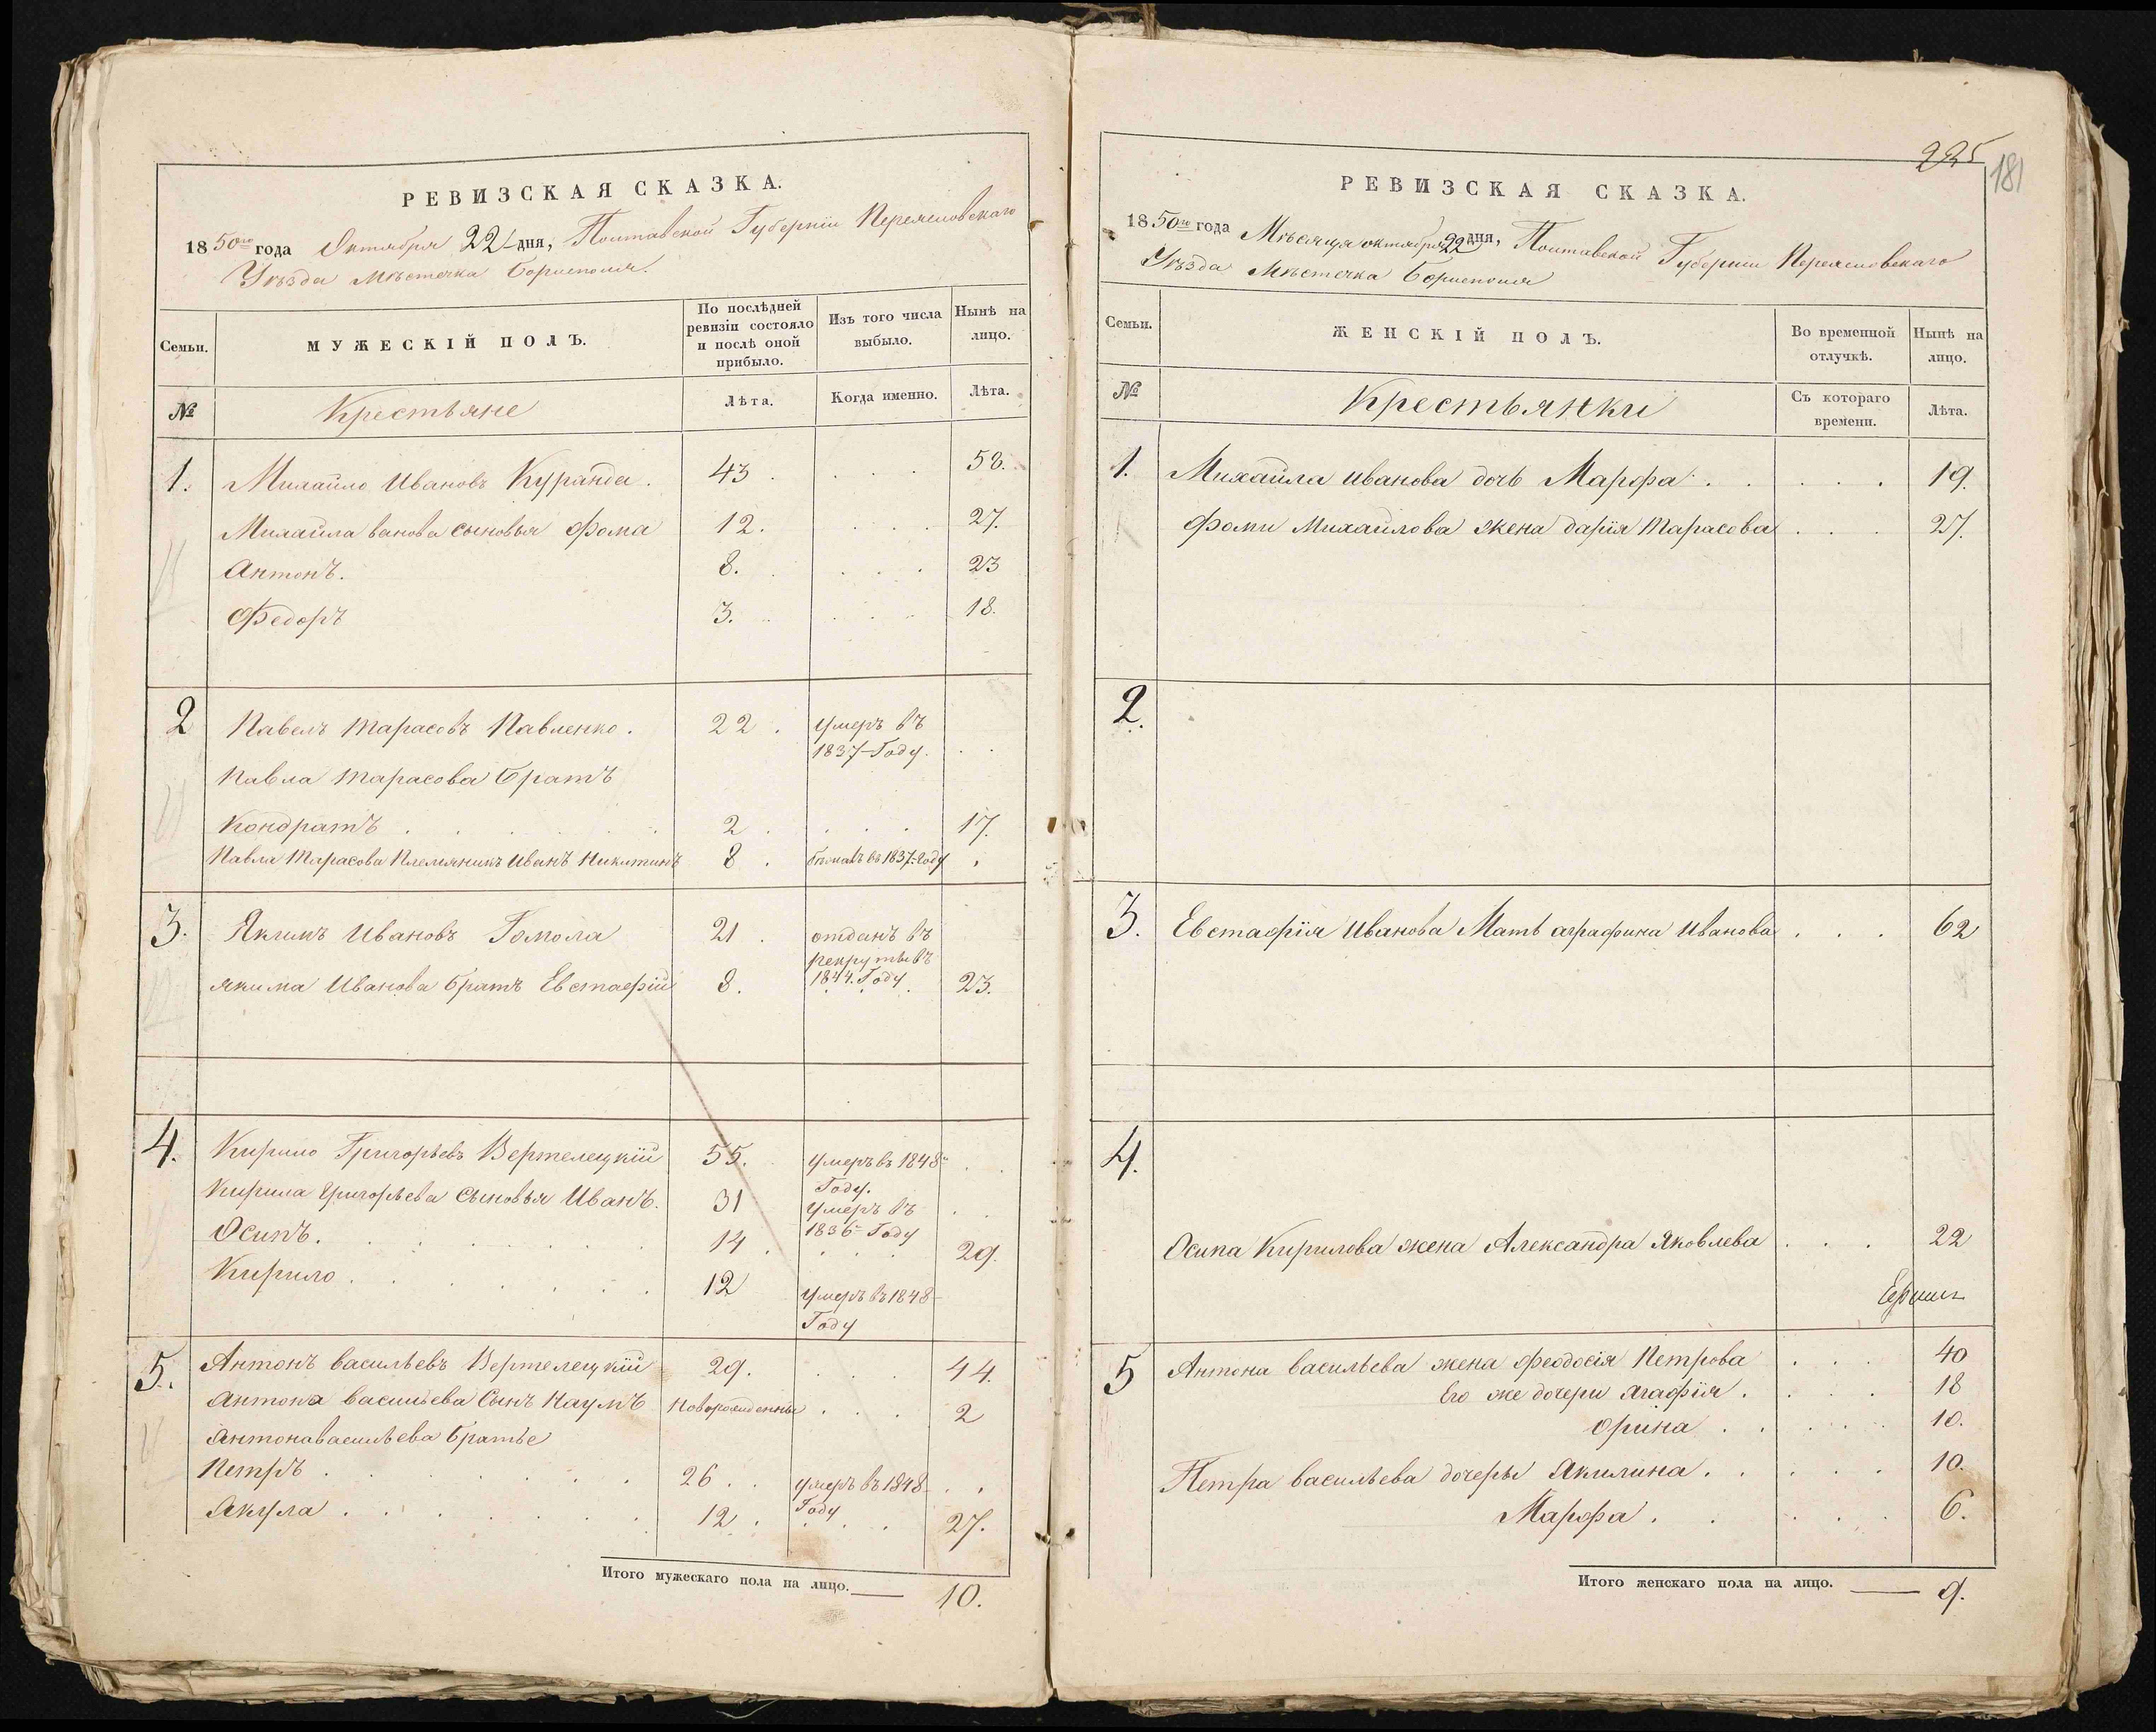 РЕВИЗСКАЯ СКАЗКА.
1850го года Октября 22 дня, Полтавской Губерніи Переяславскаго
Уѣзда Мѣстечка Борисполя.
Семьи.
МУЖЕСКІЙ ПОЛЪ.
По послѣдней ревизіи состояло и послѣ оной прибыло.
Изъ того числа выбыло.
Нынѣ на лицо.
№
Крестьяне
Лѣта.
Когда именно.
Лѣта.
1. Михайло Ивановъ Куранда. 43 . . . . 58.
Михайла ванова сыновья Фома 12. . . . 27.
Антонъ. 8. . . . 23
Федоръ 3. . . . 18.
2 Павелъ Тарасовъ Павленко. 22. умеръ въ
1837-Году. . .
Павла Тарасова Братъ
Кондратъ . . . . 2 . . . . 17.
Павла Тарасова Племянникъ Иванъ Никитинъ 8 . въ 1837-Году .
3. Якимъ Ивановъ Гомола 21 . отданъ въ
рекруты въ
1844. Году
якима Иванова братъ Евстафій 8. . . . 23.
4. Кирило Григорьевъ Вертелецкій 55. умеръ въ 1848-
Году.
Кирила Григорьева Сыновья Иванъ. 31 умеръ въ
1836- Году
Осипъ. . . . . 14 . . . . 29.
Кирило . . . . 12 умеръ въ 1848-
Году
5. Антонъ васильевъ Вертелецкій 29. . . . 44.
Антона васильева Сынъ Наумъ Новорожденны . . . 2
Антона васильева братье
Петръ . . . . 26 . . умеръ въ 1848-
Году
Акула . . . . 12 . . . . 27.
Итого мужескаго пола на лицо. — 10.
225
181
РЕВИЗСКАЯ СКАЗКА.
1850го года Мѣсяца октября 22 дня, Полтавской Губерніи Переяславскаго
Уѣзда Мѣстечка Борисполя
Семьи.
ЖЕНСКІЙ ПОЛЪ.
Во временной отлучкѣ.
Нынѣ на лицо.
№
Крестьянки
Съ котораго времени.
Лѣта.
1. Михайла Иванова дочь Марфа . . . . . 19.
Фомы Михайлова жена дарія Тарасова . . . 27.
2.
3. Евстафія Иванова Мать аграфина Иванова . . . 62
4.
Осипа Кирилова жена Александра Яковлева . . . 22
5 Антона васильева жена Феодосія Петрова . . . 40
Его же дочери Агафія . . . . 18
Орина . . . . . 10.
Петра васильева дочеры Акилина . . . . . 10.
Марфа . . . . . 6.
Итого женскаго пола на лицо. — 9.